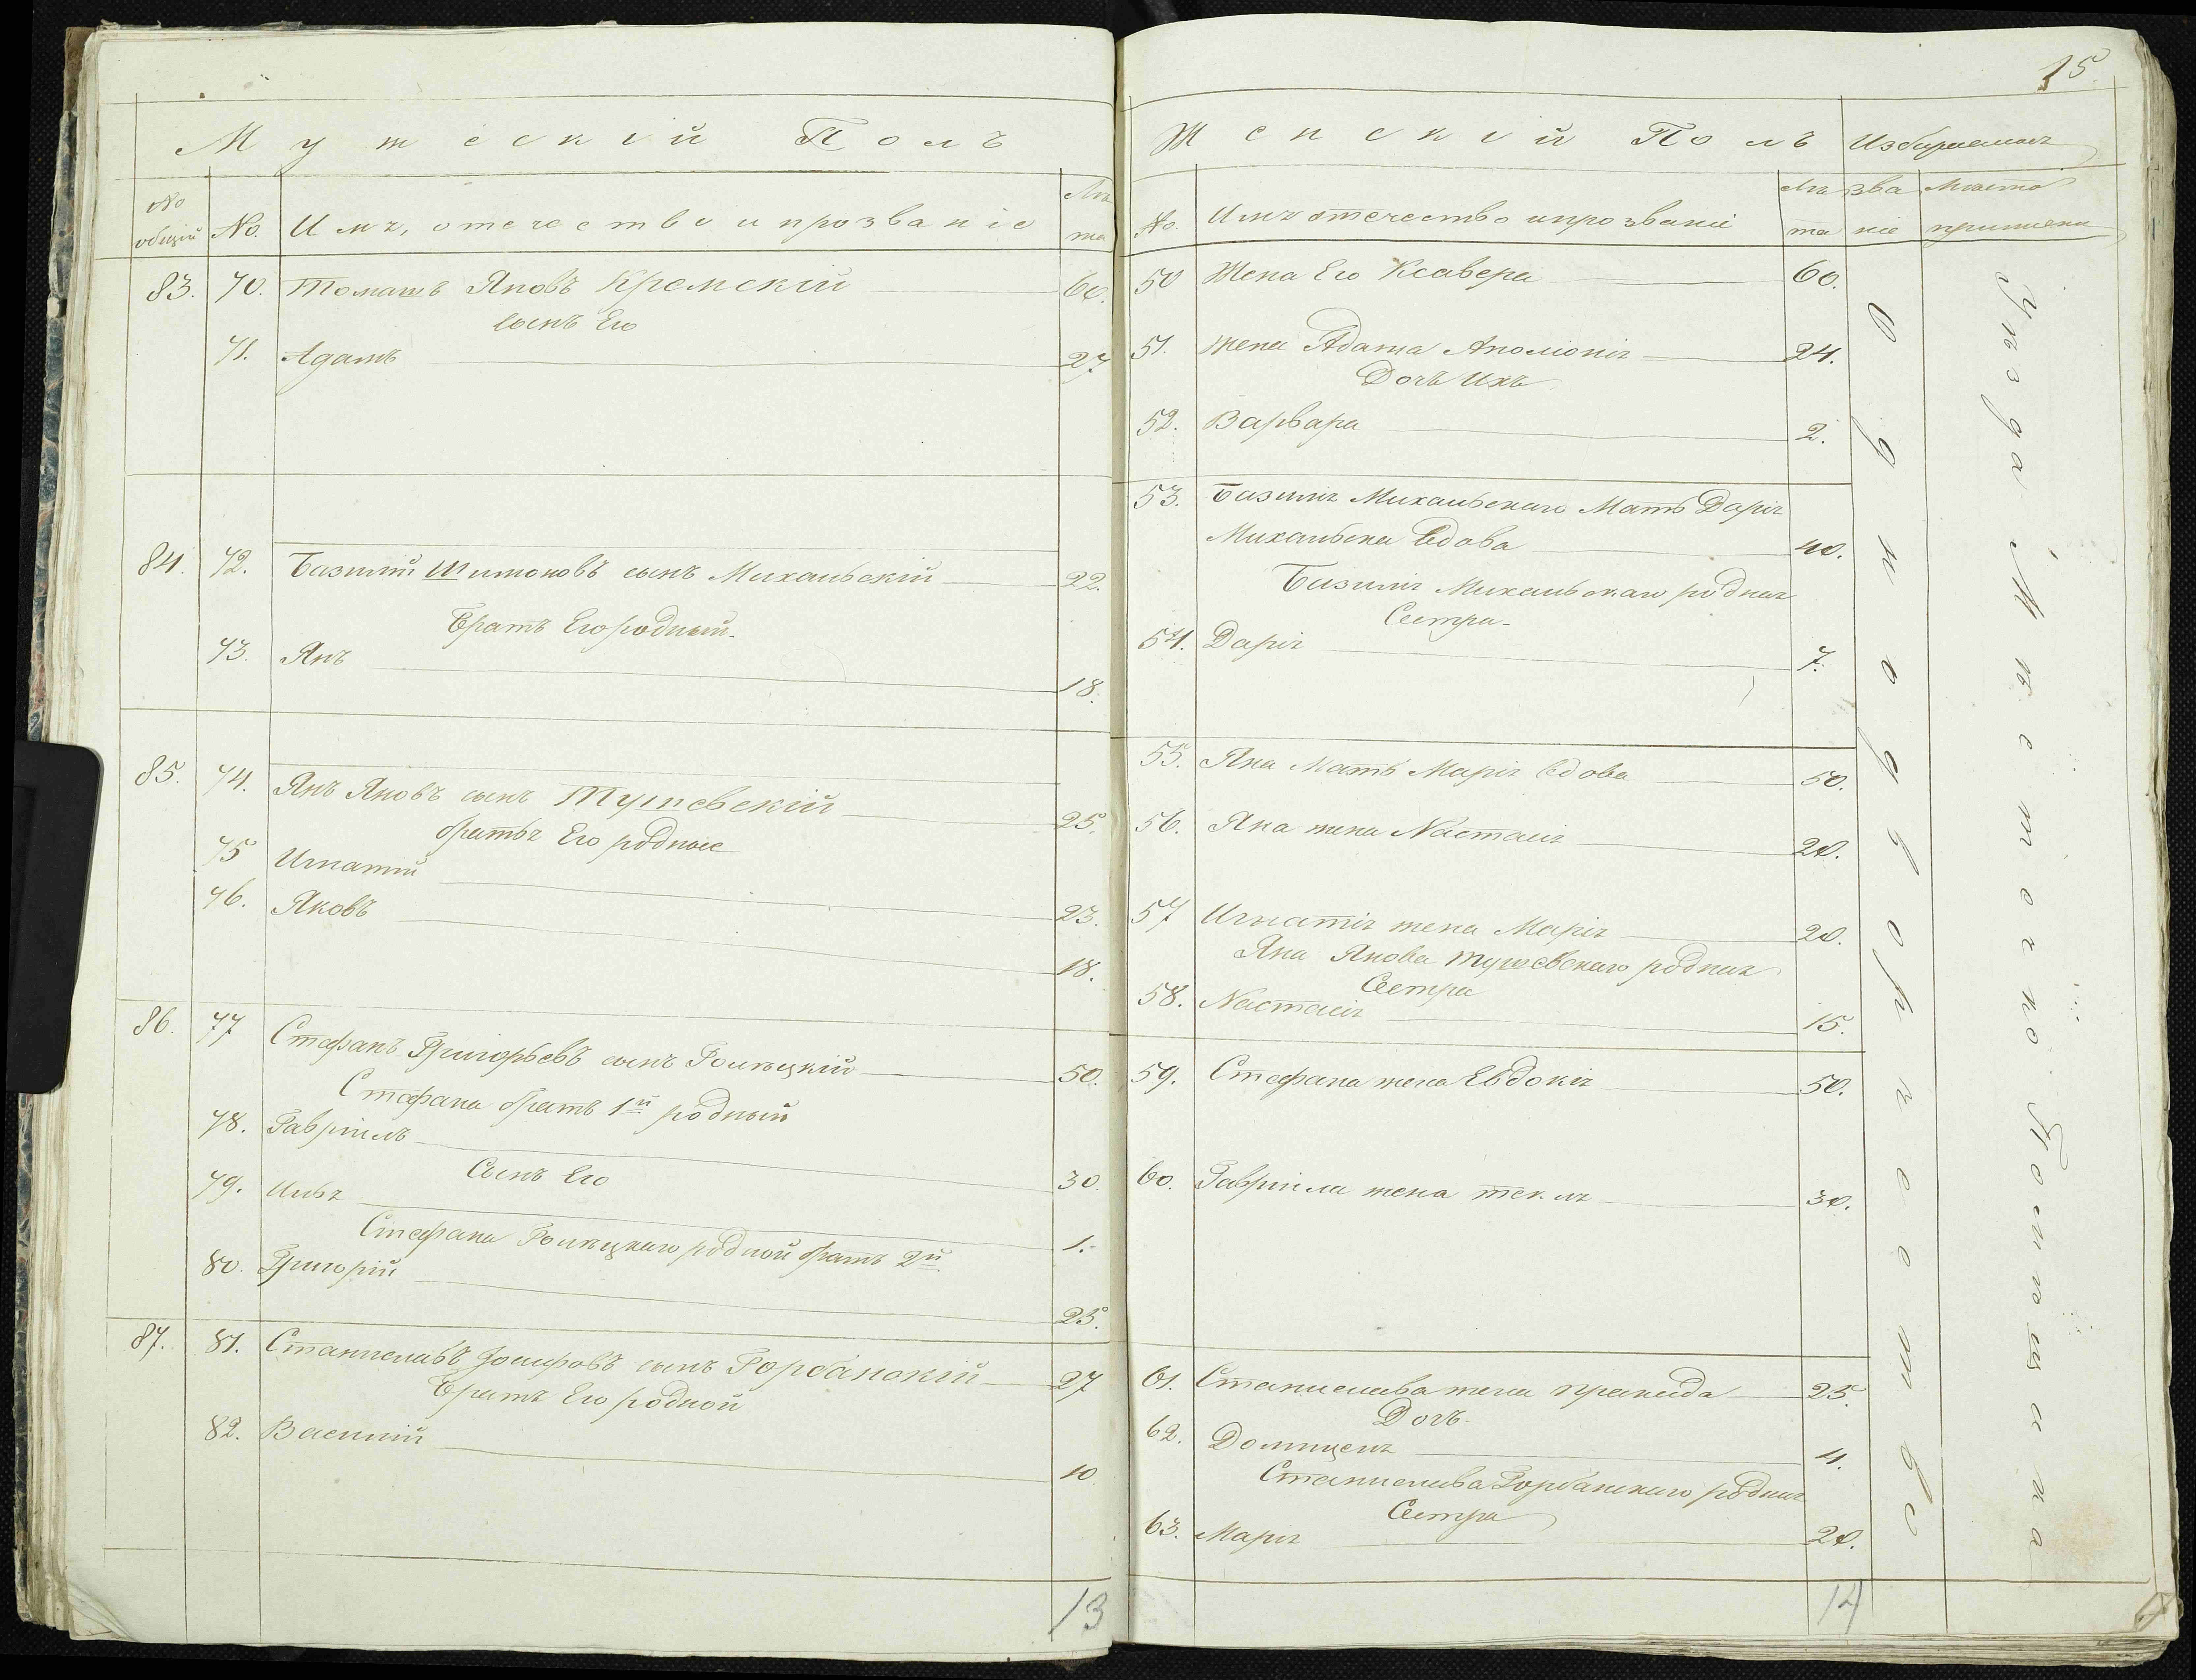 15
Мужескій Полъ
№ общій
№.
Имя, отечество и прозваніе
Лѣта
83. 70. Томашъ Яновъ Кремскій 60.
сынъ Его
71. Адамъ 27
84. 72. Базилій Шимоновъ сынъ Михальскій 22.
Братъ Его родный.
73. Янъ 18.
85. 74. Янъ Яновъ сынъ Тушевскій 25.
братья Его родные
75 Игнатій 23.
76. Яковъ 18.
86. 77 Стефанъ Григорьевъ сынъ Голецкій 50.
Стефана братъ 1й родный
78. Гавріилъ 30.
Сынъ Его
79. Илья 1.
Стефана родной братъ 2й.
80. Григорій 25.
87. 81. Станиславъ Іосифовъ сынъ Горбанскій 27
Братъ Его родной
82. Василій 10
13
Женскій Полъ
Избираемыя
№.
Имя отечество и прозваніе
Лѣта
званіе
Мѣста приписки
50 Жена Его Ксавера 60.
51. Жена Адама Аполіонія 24.
Дочь Ихъ
52. Варвара 2.
53. Базилія Михальскаго Мать Дарія
Михальска Вдова 40.
Базилія Михальскаго родная
Сестра.
54. Дарія 7.
55. Яна Мать Марія Вдова 50.
56. Яна жена Настасія 20.
57 Игнатія жена Марія 20.
Яна Янова Тушевскаго родная
Сестра
58. Настасія 15.
59. Стефана жена Евдокія 50.
60. Гавріила жена текля 30.
61. Станислава жена 25.
Дочь.
62. Доминцеля 4.
Станислава Горбанскаго родная
Сестра
63. Марія 20.
14
Однодворчество
Уѣзда Мѣстечко